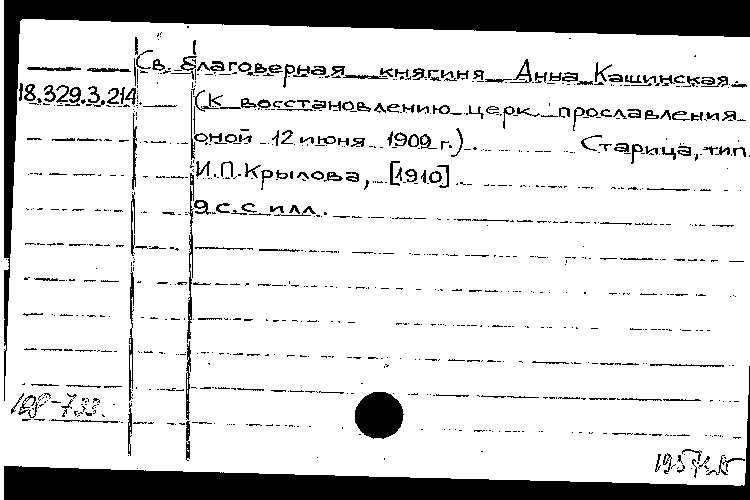 Св. благоверная княгиня Анна Кашинская.
18.329.3.214
(К восстановлению церк. прославления
оной 12 июня 1909 г.). Старица, тип.
И.П.Крылова, [1910]
9 с. с илл.
128-733.